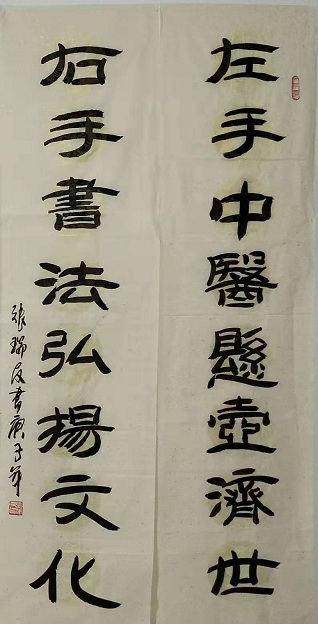 左手中醫懸壺濟世
右手書法弘揚文化
張瑞友書庚子年